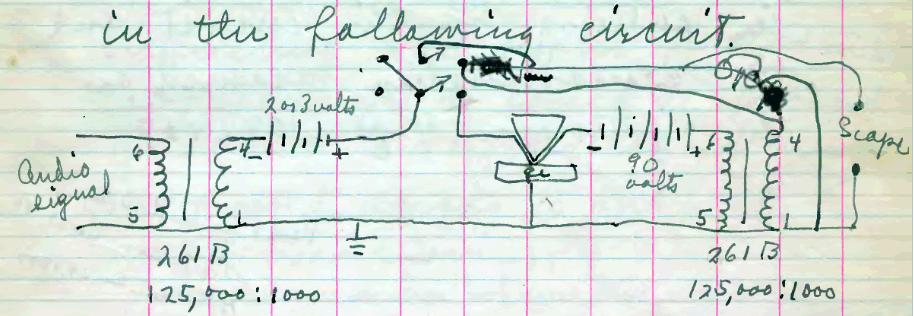 in the following circuit.
2 or 3 volts
- +
Audio signal
6 4
5 1
261 B
125,000:1000
Ge
- +
90 volts
6 4
5 1
261 B
125,000:1000
Scope